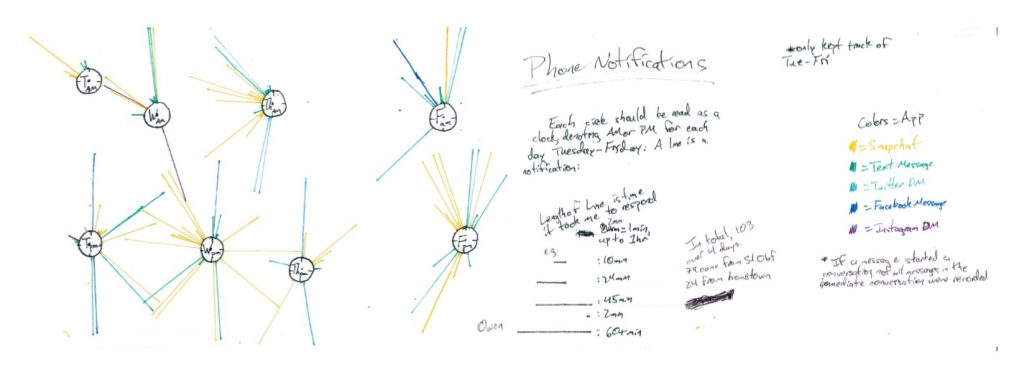 Tu AM
W AM
Th AM
F AM
Tu PM
W PM
Th PM
F PM
Owen
Phone Notifications
Each circle should be read as a
clock, denoting AM or PM for each
day Tuesday-Friday. A line is a
notification:
Length of Line is time
it took me to respond
2mm
= 1min,
up to 1hr
e.g.
: 10min
: 24min
: 45min
: 2min
: 60+min
In total, 103
over 4 days.
79 came from
24 from hometown
*only kept track of
Tue-Fri
Colors = App
= Snapchat
= Text Message
= Twitter DM
= Facebook Message
= Instagram DM
* If a message started a
conversation not all messages in the
immediate conversation were recorded